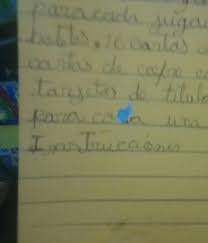 para cada jugad
hoteles, 16 cartas d
cartas de cofre c
tarjetas de titulo
para cada una
Instrucciones